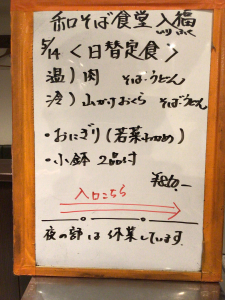 和そば食堂 入福
5/14 <日替定食>
温) 肉 そば・うどん
冷) 山かけおくら そば・うどん
・おにぎり(若菜わかめ)
・小鉢 2品付
入口こちら
夜の部は休業しています。